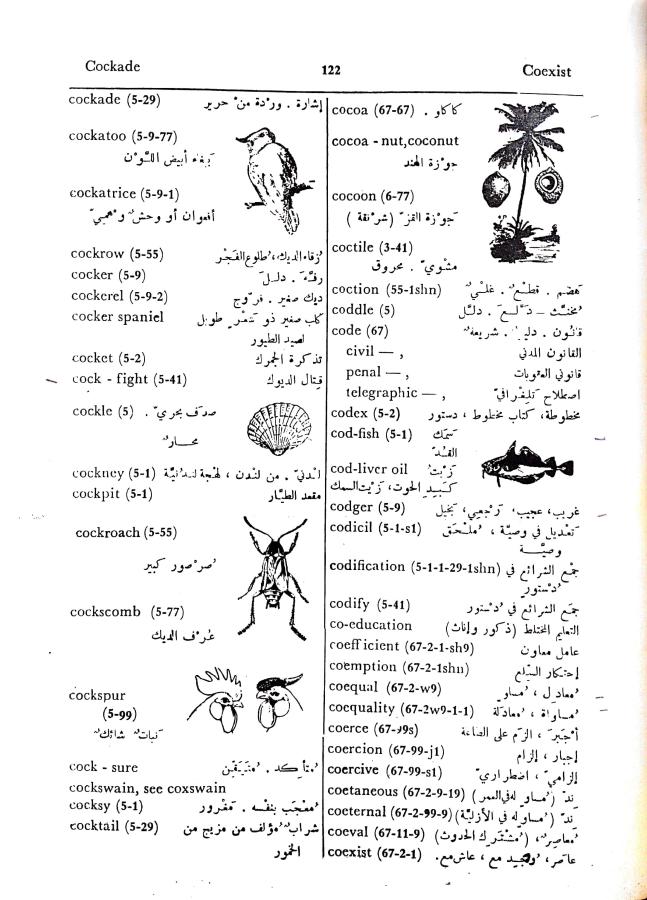 Cockade
122
Coexist
cockade (5-29) إشارة . وردة من حرير
cockatoo (5-9-77)
ببغاء أبيض اللون
cockatrice (5-9-1)
أفعوان أو وحش وهمي
cockrow (5-55) زقاء الديك، طلوع الفجر
cocker (5-9) رفّه . دلّل
cockerel (5-9-2) ديك صغير . فرّوج
cocker spaniel كلب صغير ذو شعر طويل
لصيد الطيور
cocket (5-2) تذكرة الجمرك
cock - fight (5-41) قتال الديوك
cockle (5) صدف بحريّ .
محار
cockney (5-1) لندنيّ . من لندن ، لهجة لندنيّة
cockpit (5-1) مقعد الطيّار
cockroach (5-55)
صرصور كبير
cockscomb (5-77)
عرف الديك
cockspur
(5-99)
نبات شائك
cock - sure متأكد . متيقن
cockswain, see coxswain
cocksy (5-1) معجب بنفسه . مغرور
cocktail (5-29) شراب مؤلف من مزيج من
الخمور
cocoa (67-67) كاكاو .
cocoa - nut,coconut
جوزة الهند
cocoon (6-77)
جوزة القز ( شرنقة )
coctile (3-41)
مشويّ . محروق
coction (55-1shn) هضم . قطع . غلي
coddle (5) خنّث – دلّع . دلّل
code (67) قانون . دليل . شريعة
civil — , القانون المدني
penal — , قانوني العقوبات
telegraphic — , اصطلاح تلغرافيّ
codex (5-2) مخطوطة، كتاب مخطوط ، دستور
cod-fish (5-1) سمك
القدّ
cod-liver oil زيت
كبد الحوت، زيت السمك
codger (5-9) غريب، عجيب، رجعي، بخيل
codicil (5-1-s1) تعديل في وصيّة ، ملحق
وصيّة
codification (5-1-1-29-1shn) جمع الشرائع في
دستور
codify (5-41) جمع الشرائع في دستور
co-education التعليم المختلط (ذكور وإناث)
coefficient (67-2-1-sh9) عامل معاون
coemption (67-2-1shn) إحتكار البيع
coequal (67-2-w9) معادل ، مساو
coequality (67-2w9-1-1) مساواة ، معادلة
coerce (67-99s) أجبر ، الزم على الطاعة
coercion (67-99-j1) إجبار ، إلزام
coercive (67-99-s1) إلزامي ، اضطراري
coetaneous (67-2-9-19) ندّ (مساو له في العمر)
coeternal (67-2-99-9) ندّ (مساو له في الأزليّة)
coeval (67-11-9) معاصر، (مشترك الحدوث)
coexist (67-2-1) عاصر، وجد مع ، عاش مع.